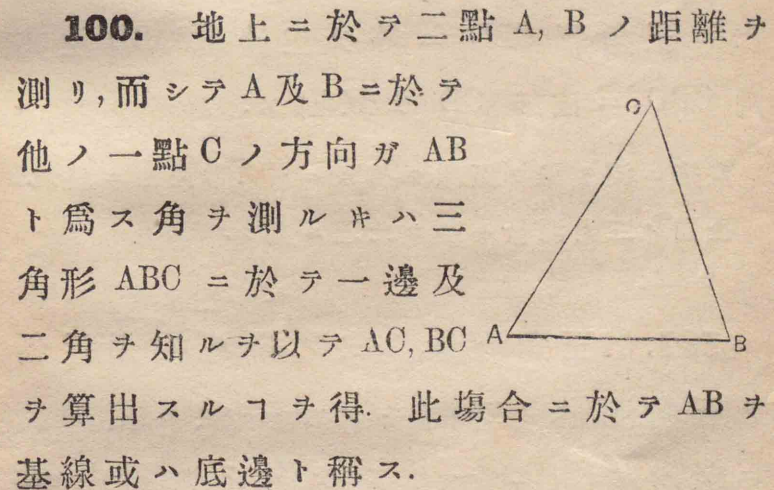 100. 地上ニ於テ二點 A, B ノ距離ヲ
測リ,而シテ A 及 B ニ於テ
他ノ一點 C ノ方向ガ AB
ト爲ス角ヲ測ルキハ三
角形 ABC ニ於テ一邊及
二角ヲ知ルヲ以テ AC, BC
ヲ算出スルヿヲ得. 此塲合ニ於テ AB ヲ
基線或ハ底邊ト稱ス.
C
A
B